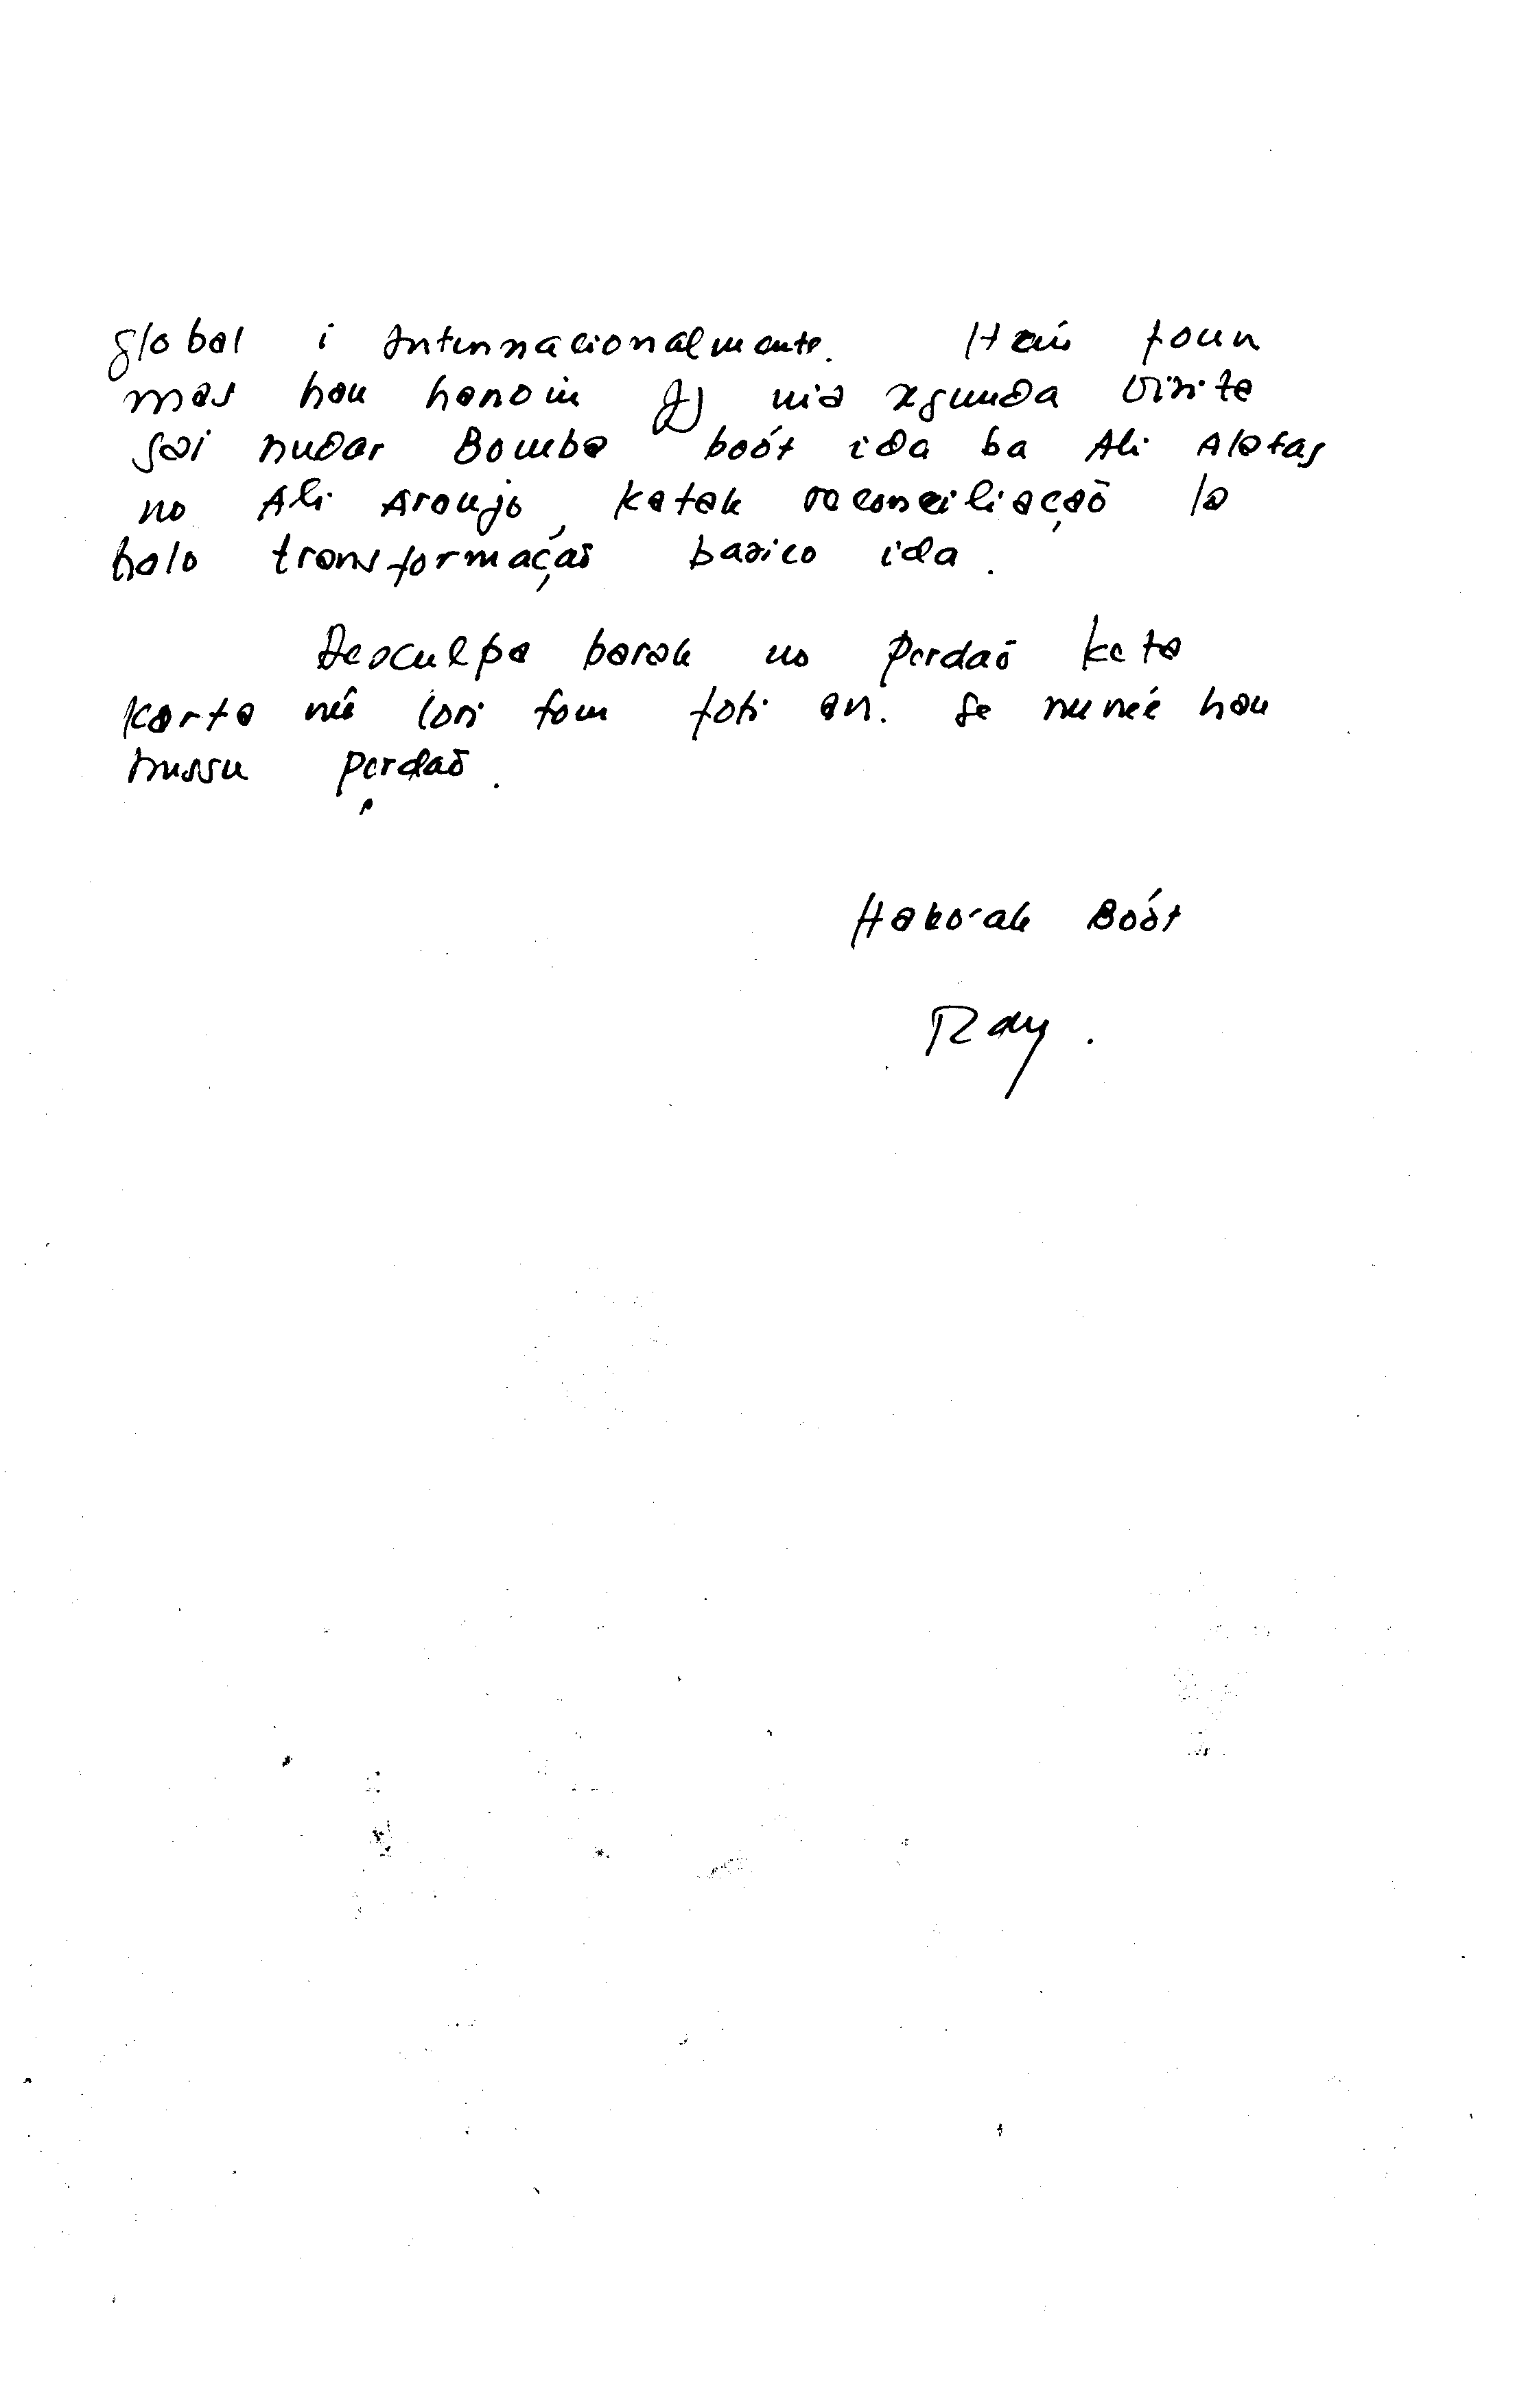 global i Internnacionalmente. Hau foun
mas hau hanoin nia segunda visita
sai nudar Bomba boót ida ba Ali Alatas
no Ali Araujo, katak reconciliação la
halo transformação basico ida.
Desculpa barak no Perdaō keta
karta neé lori tom foti an. Se nuneé hau
hussu perdaō.
Hakorak Boót
Ray.